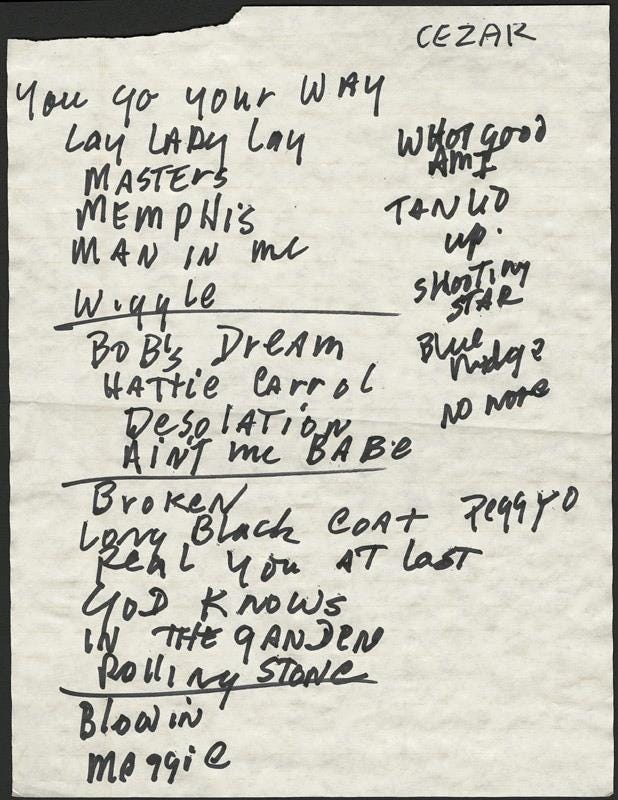 CEZAR
You go your WAY
Lay LADY Lay
MASTERS
MEMPHIS
MAN IN me
Wiggle
BOB's DreAM
HATTie CArrol
DesolATION
AIN'T me BABe
BroKeN
Long Black COAT Peggy O
ReAL You AT LAST
GOD KNOWS
IN THE GARDEN
Rolling STONe
BlowIN
MAggie
WHAT good
AM I
TANGLD
up.
SHOOTING
STAR
Blue
NO More